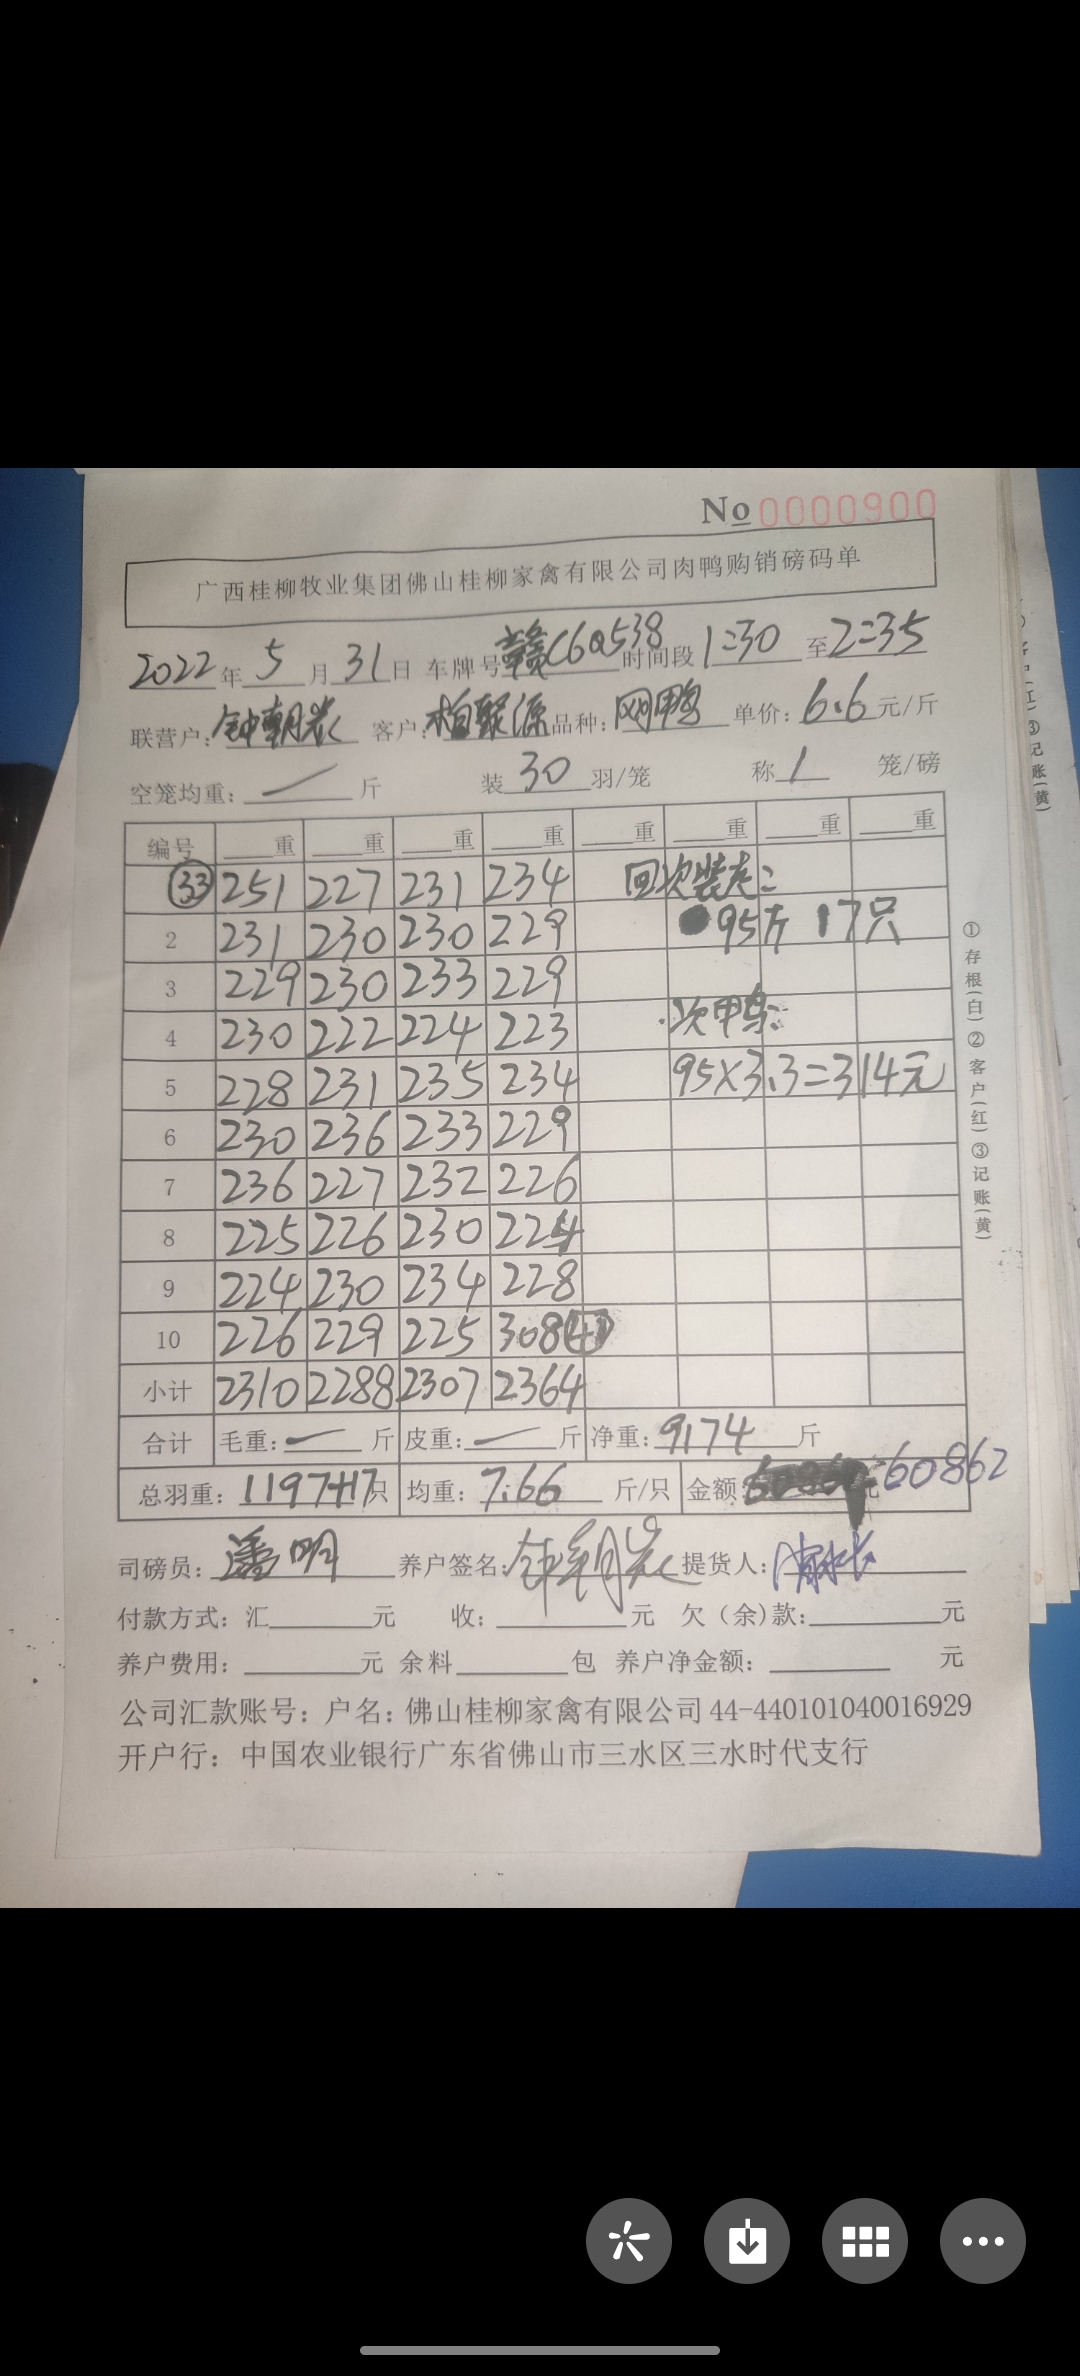 No 0000900
广西桂柳牧业集团佛山桂柳家禽有限公司肉鸭购销磅码单
2022年5月31日 车牌号赣C6Q538 时间段1:30至2:35
联营户:钟朝炭 客户:柏聚源 品种:网鸭 单价:6.6元/斤
空笼均重:一斤 装30羽/笼 称1笼/磅
编号 重 重 重 重 重 重 重 重
㉝ 251 227 231 234 回次装走:
2 231 230 230 229 95斤 17只
3 229 230 233 229
4 230 222 224 223 次鸭:
5 228 231 235 234 95×3.3=314元
6 230 236 233 229
7 236 227 232 226
8 225 226 230 224
9 224 230 234 228
10 226 229 225 308 ㊶
小计 2310 2288 2307 2364
合计 毛重:一斤 皮重:一斤 净重:9174斤
总羽重:1197+17只 均重:7.66斤/只 金额: 元 60862
司磅员:潘明 养户签名: 提货人:
付款方式:汇 元 收: 元 欠(余)款: 元
养户费用: 元 余料 包 养户净金额: 元
公司汇款账号:户名:佛山桂柳家禽有限公司 44-440101040016929
开户行:中国农业银行广东省佛山市三水区三水时代支行
①存根(白)②客户(红)③记账(黄)
③记账(黄)